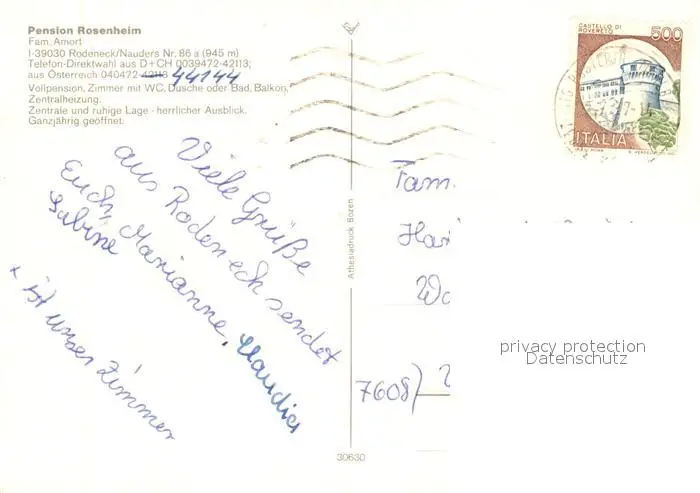 Pension Rosenheim
Fam. Amort
I-39030 Rodeneck/Nauders Nr. 86 a (945 m)
Telefon-Direktwahl aus D+CH 0039472-42113;
aus Österreich 040472-42113 44144
Vollpension, Zimmer mit WC, Dusche oder Bad, Balkon,
Zentralheizung.
Zentrale und ruhige Lage - herrlicher Ausblick.
Ganzjährig geöffnet.
Viele Grüße
aus Rodeneck sendet
Euch, Marianne, Claudia
Sabine
x ist unser Zimmer
Athesiadruck Bozen
30630
CASTELLO DI
ROVERETO
500
ITALIA
Fam.
7608)
privacy protection
Datenschutz